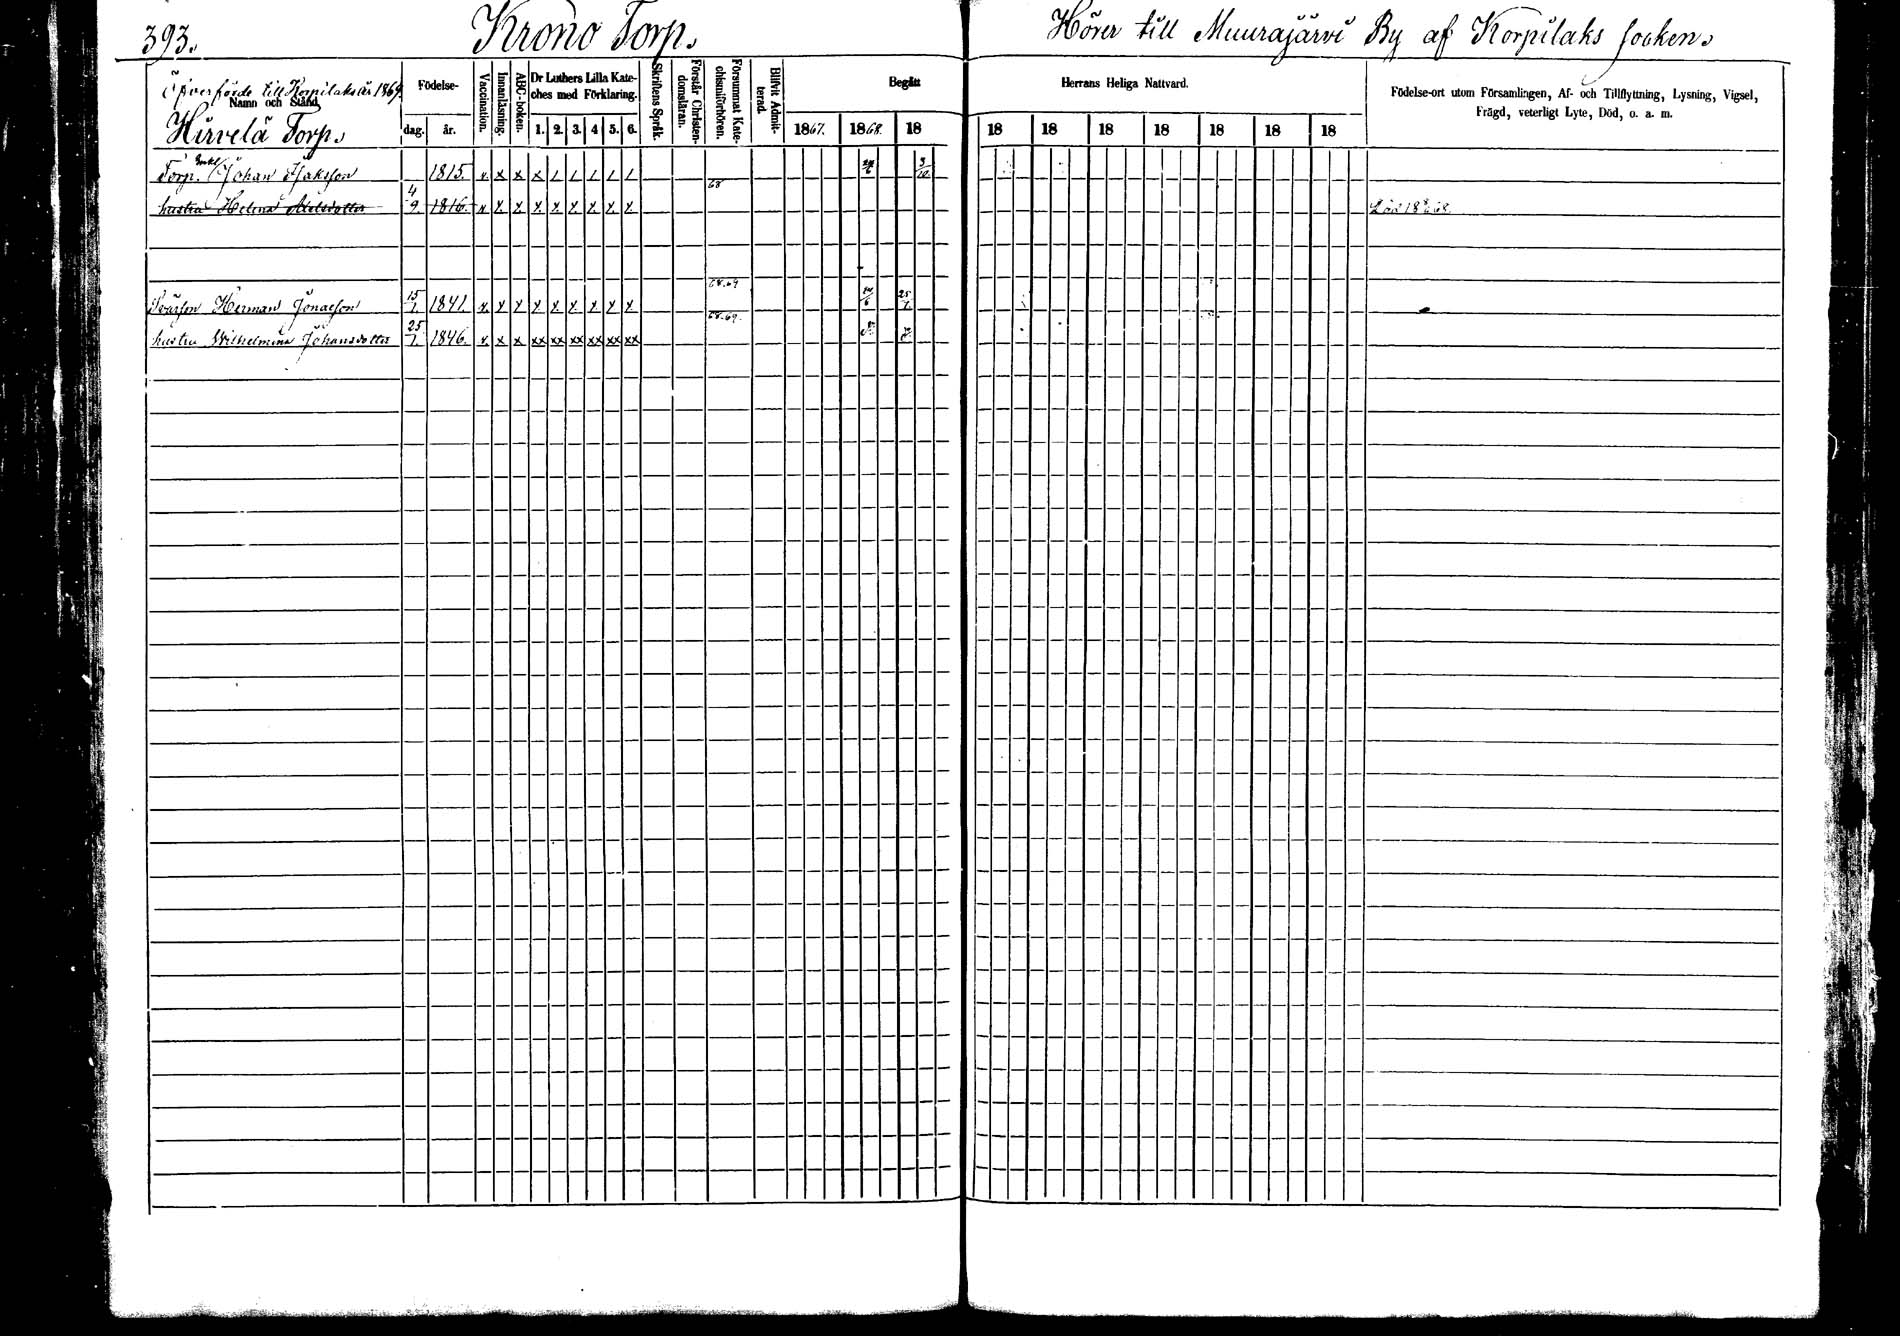 393. Krono Torp. Hörer till Muurajärvi By af Korpilaks socken.
Öfverförde till Korpilaks år 1869.
Namn och Stånd
Hirvelä Torp.
Födelse-
dag. år.
Vaccination.
Innanläsning.
ABC-boken.
Dr Luthers Lilla Kate-
ches med Förklaring.
1. 2. 3. 4 5. 6.
Skriftens Språk.
Förstår Christen-
domsläran.
Försummat Kate-
chismiförhören.
Blifvit Admit-
terad.
Begått Herrans Heliga Nattvard.
1867. 1868. 18 18 18 18 18 18 18 18
Födelse-ort utom Församlingen, Af- och Tillflyttning, Lysning, Vigsel,
Frägd, veterligt Lyte, Död, o. a. m.
Torp. Johan Isaksson 1815. x x x x / / / / / 3/10
68
hustru Helena 4/9 1816.
68.69
Herman Jonasson 15/1. 1841. x x x x x x x x x 25/7.
68.69.
hustru Wilhelmina Johansdotter 25/1. 1846. x x x xx xx xx xx xx xx